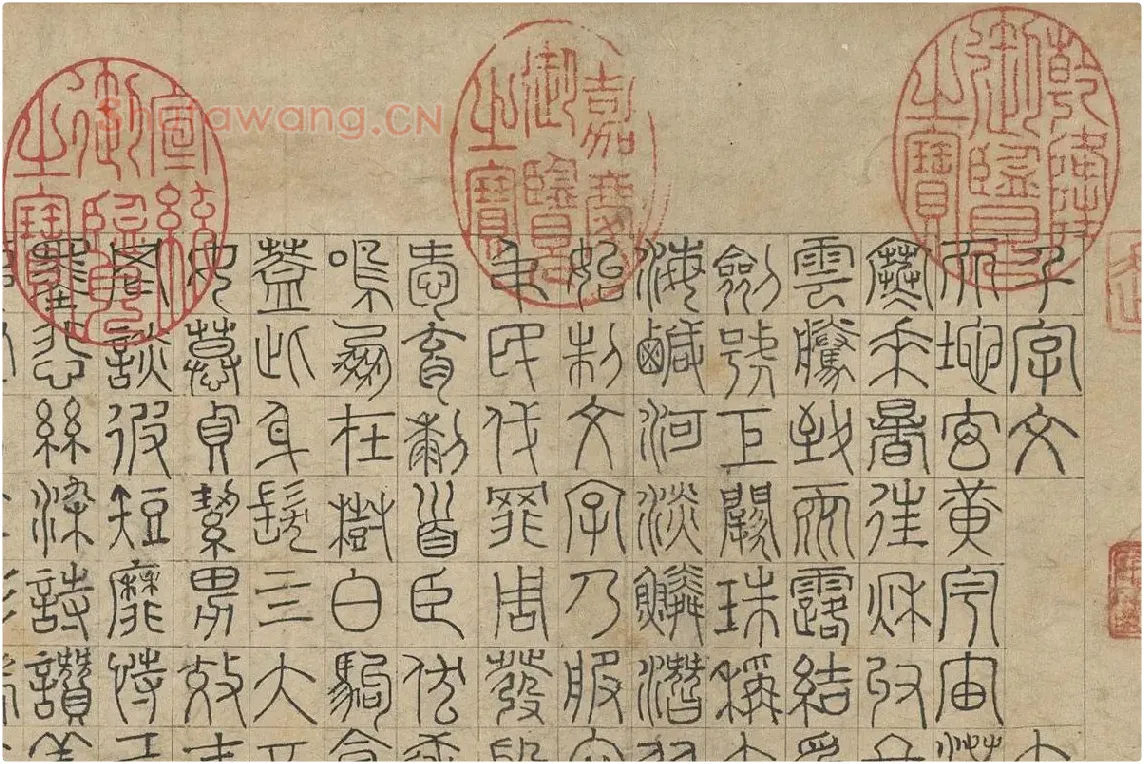 乾隆御覽之寶
嘉慶御覽之寶
宣統御覽之寶
Shufawang.CN
千字文
天地玄黄宇宙
寒來暑往秋收冬
雲騰致雨露結為
劍號巨闕珠稱夜
海鹹河淡鱗潛羽
始制文字乃服衣
弔民伐罪周發殷
愛育黎首臣伏戎
鳴鳳在樹白駒食
蓋此身髮四大五
女慕貞絜男效才
罔談彼短靡恃己
墨悲絲染詩讚羔